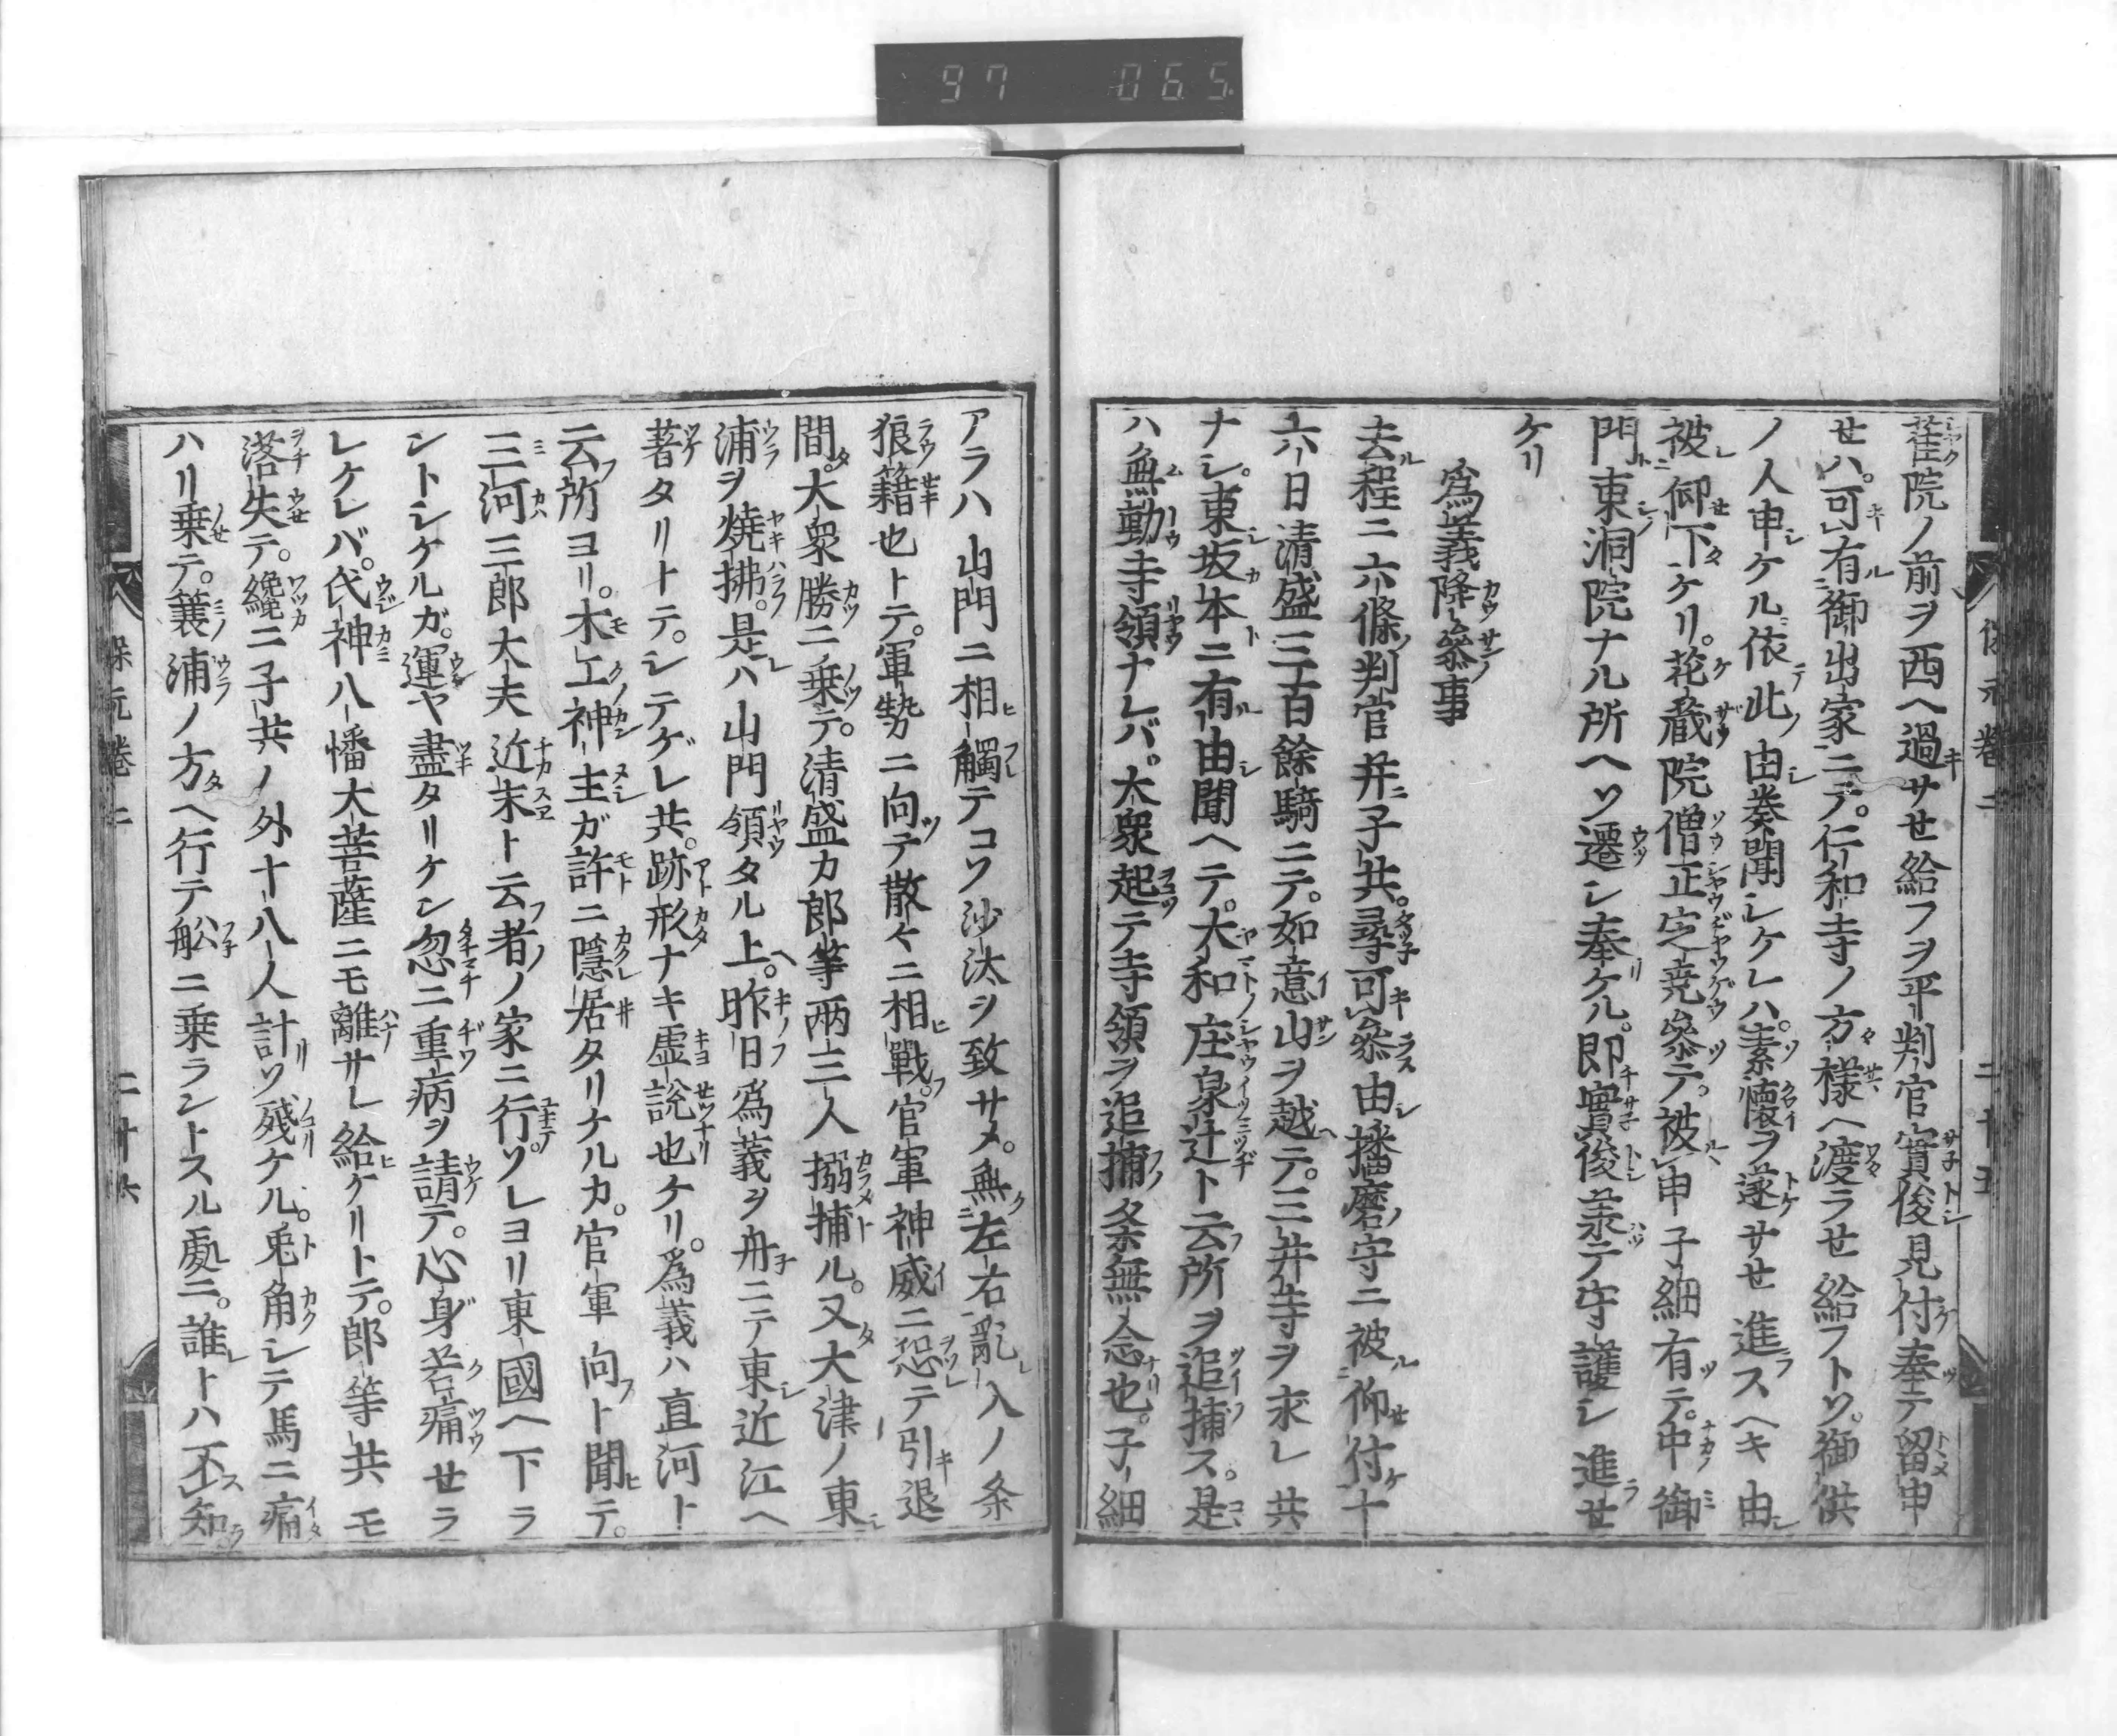 97 065
萑院ノ前ヲ西ヘ過サせ給フヲ平判官實俊見付奉テ留申
せハ。可有御出家ニテ。仁和寺ノ方樣ヘ渡ラせ給フトソ。御供
ノ人申ケル。依此由奏聞シケレハ。素懷ヲ遂サせ進スヘキ由
被仰下ケリ。花藏院僧正定尭參テ。被申子細有テ。中御
門東洞院ナル所ヘソ遷シ奉ケル。即實俊兼テ守護シ進せ
ケリ
爲義降參事
去程ニ六條判官并子共。尋可參由播磨守ニ被仰付十
六日清盛三百餘騎ニテ。如意山ヲ越テ。三井寺ヲ求レ共
ナシ。東坂本ニ有由聞ヘテ。大和庄泉辻ト云所ヲ追捕ス。是
ハ無動寺領ナレバ。大衆起テ寺領ヲ追捕条無念也。子細
アラハ山門ニ相觸テコソ沙汰ヲ致サメ。無左右亂入ノ条
狼籍也トテ。軍勢ニ向テ散々ニ相戰。官軍神威ニ恐テ引退
間。大衆勝ニ乗テ。清盛カ郎等兩三人搦捕ル。又大津ノ東
浦ヲ燒拂。是ハ山門領タル上。昨日爲義ヲ舟ニテ東近江ヘ
著タリトテ。シテゲレ共。跡形ナキ虚説也ケリ。爲義ハ直河ト
云所ヨリ。木工神主ガ許ニ隱居タリケルカ。官軍向ト聞テ。
三河三郎大夫近末ト云者ノ家ニ行。ソレヨリ東國ヘ下ラ
ントシケルガ。運ヤ盡タリケン忽ニ重病ヲ請テ。心身苦痛せラ
レケレバ。氏神八幡大菩薩ニモ離サレ給ケリトテ。郎等共モ
落失テ。纔ニ子共ノ外十八人計ソ殘ケル。兎角シテ馬ニ痛
ハリ乗テ。蓑浦ノ方ヘ行テ舩ニ乗ラントスル處ニ。誰トハ不知
保元卷二 二十六